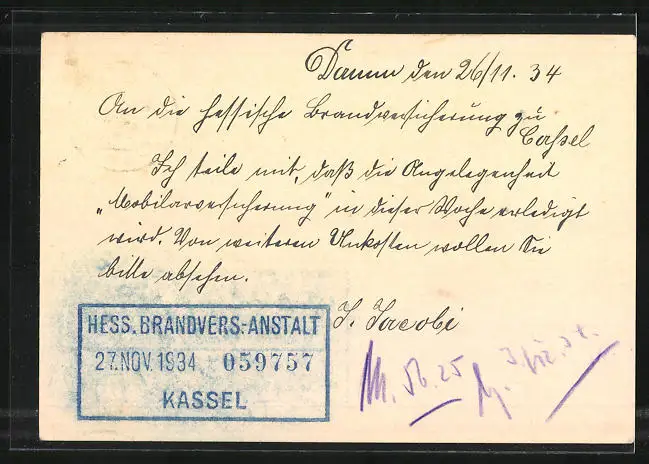 Damm den 26/11. 34
An die hessische Brandversicherung zu
Cassel
Ich teile mit, daß die Angelegenheit
„Mobilarversicherung" in dieser Woche erledigt
wird. Von weiteren Unkosten wollen Sie
bitte absehen.
J. Jacobi
HESS. BRANDVERS.-ANSTALT
27. NOV. 1934 059757
KASSEL